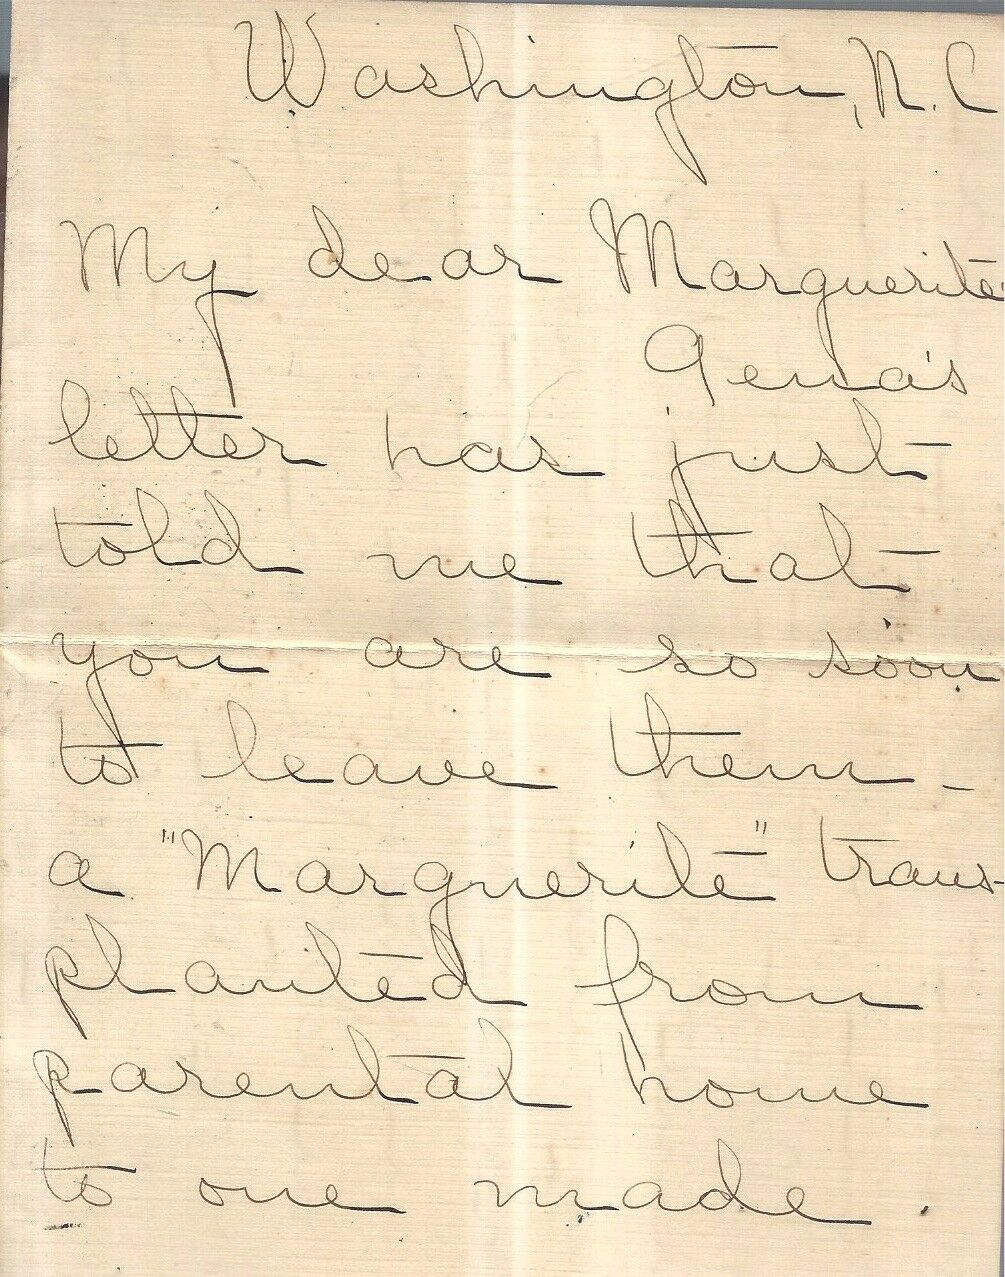 Washington, N.C
My dear Marguerite
Gena's
letter has just
told me that
you are so soon
to leave them -
a "Marguerite" trans-
planted from
parental home
to one made.